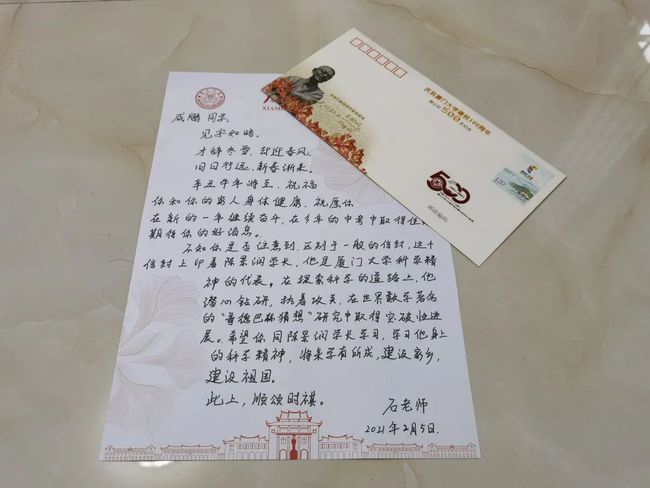 XIAM
咸鹏 同学：
见字如晤。
才辞冬雪，却迎春风，
旧日行远，新春渐来。
辛丑牛年将至，祝福
你和你的家人身体健康，祝愿你
在新的一年继续奋斗，在今年的中考中取得佳绩
期待你的好消息。
不知你是否注意到，区别于一般的信封，这个
信封上印着陈景润学长，他是厦门大学科学精
神的代表。在探索科学的道路上，他
潜心钻研，执着攻关，在世界数学著名
的“哥德巴赫猜想”研究中取得突破性进
展。希望你向陈景润学长学习，学习他身上
的科学精神，将来学有所成，建设家乡，
建设祖国。
此上，顺颂时祺。
石老师
2021年2月5日.
庆祝厦门大学建校100周年
500
邮政编码